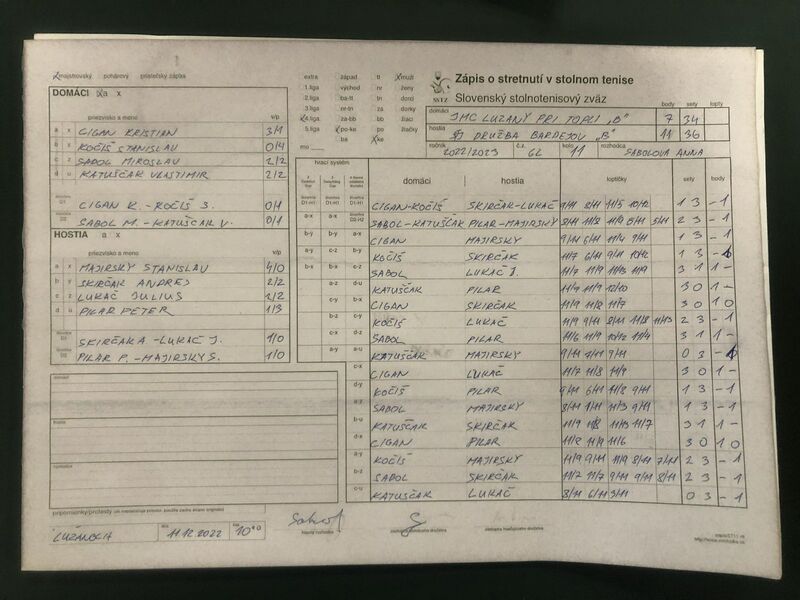 majstrovský pohárový priateľský zápas
DOMÁCI a x
priezvisko a meno v/p
a x CIGAN KRISTIAN 3/1
b y KOČIŠ STANISLAV 0/4
c z SABOL MIROSLAV 2/2
d u KATUŠČAK VLASTIMIR 2/2
D1 CIGAN K. - KOČIŠ S. 0/1
D2 SABOL M. - KATUŠČAK V. 0/1
HOSTIA a x
priezvisko a meno v/p
a x MAJIRSKY STANISLAV 4/0
b y SKIRČAK ANDREJ 2/2
c z LUKAČ JULIUS 2/2
d u PILAR PETER 1/3
SKIRČAK A - LUKAČ J. 1/0
PILAR P. - MAJIRSKY S. 1/0
domáci
hostia
rozhodca
pripomienky/protesty
11.12.2022 10⁰⁰
extra západ tl muži
1.liga východ nr ženy
2.liga ba-tt dorci
3.liga nr-tn za dorky
4.liga za-bb bb žiaci
5.liga po-ke po žiačky
ba ke
mo
Zápis o stretnutí v stolnom tenise
SSTZ Slovenský stolnotenisový zväz
body sety lopty
domáci JMC LUZANY PRI TOPLI "B" 7 34
hostia DRUŽBA BARDEJOV "B" 11 36
ročník 2022/2023 č.z. 62 kolo 11 rozhodca SABOLOVA ANNA
hrací systém
domáci hostia loptičky sety body
CIGAN-KOČIŠ SKIRČAK-LUKAČ 9/11 8/11 11/5 10/12 1 3 - 1
a-x SABOL-KATUŠČAK PILAR-MAJIRSKY 8/11 11/2 11/9 6/11 5/11 2 3 - 1
b-y a-y CIGAN MAJIRSKY 9/11 6/11 11/4 9/11 1 3 - 1
c-z b-x KOČIŠ SKIRČAK 11/7 6/11 9/11 10/12 1 3 - 1
b-x c-z SABOL LUKAČ J. 11/7 11/9 11/13 11/9 3 1 1 -
a-z d-u KATUŠČAK PILAR 11/7 11/9 12/10 3 0 1 -
c-y b-x CIGAN SKIRČAK 11/9 11/2 11/7 3 0 1 0
b-z c-y KOČIŠ LUKAČ 11/9 9/11 8/11 11/8 11/13 2 3 - 1
c-x d-z SABOL PILAR 11/6 11/9 10/12 11/4 3 1 1 -
a-y a-u KATUŠČAK MAJIRSKY 9/11 4/11 9/11 0 3 - 1
c-x CIGAN LUKAČ 11/7 11/8 11/9 3 0 1 -
d-y KOČIŠ PILAR 9/11 6/11 11/8 9/11 1 3 - 1
a-z SABOL MAJIRSKY 8/11 4/11 11/3 9/11 1 3 - 1
b-u KATUŠČAK SKIRČAK 11/9 11/8 11/13 11/7 3 1 1 -
d-x CIGAN PILAR 11/2 11/9 11/6 3 0 1 0
a-y KOČIŠ MAJIRSKY 11/9 9/11 11/9 8/11 7/11 2 3 - 1
b-z SABOL SKIRČAK 11/7 11/7 9/11 9/11 8/11 2 3 - 1
c-u KATUŠČAK LUKAČ 8/11 6/11 3/11 0 3 - 1
hlavný rozhodca